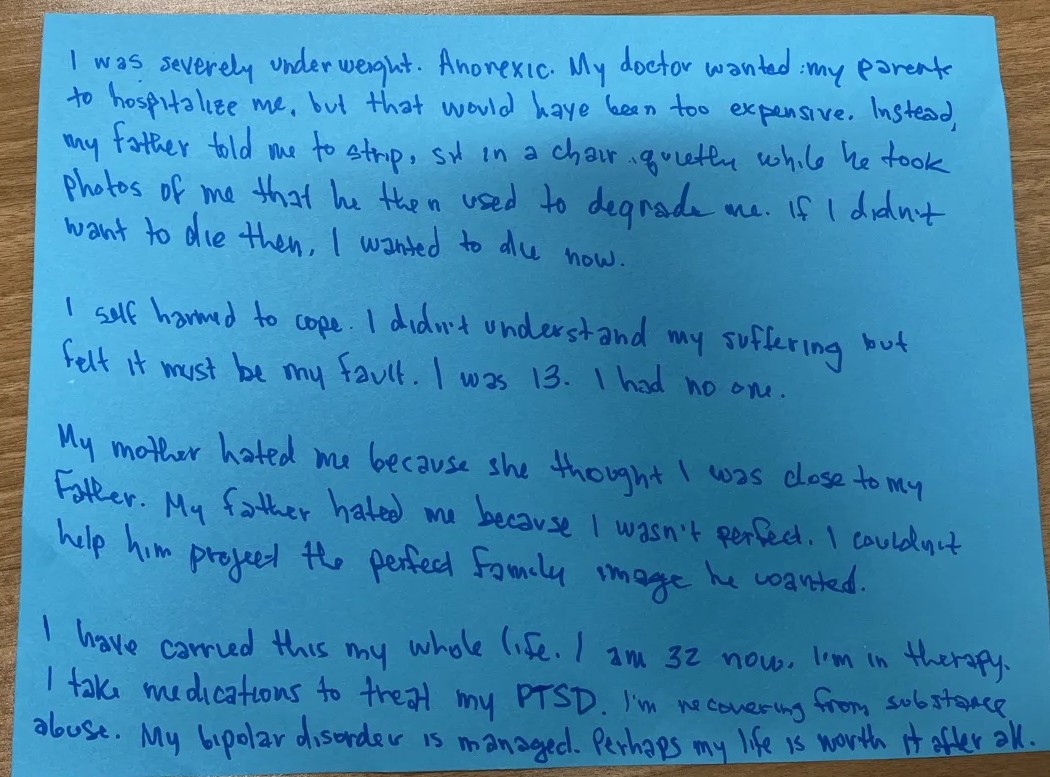 I was severely underweight. Anorexic. My doctor wanted my parents
to hospitalize me, but that would have been too expensive. Instead,
my father told me to strip, sit in a chair quietly while he took
photos of me that he then used to degrade me. If I didn't
want to die then, I wanted to die now.
I self harmed to cope. I didn't understand my suffering but
felt it must be my fault. I was 13. I had no one.
My mother hated me because she thought I was close to my
Father. My father hated me because I wasn't perfect. I couldn't
help him project the perfect family image he wanted.
I have carried this my whole life. I am 32 now. I'm in therapy.
I take medications to treat my PTSD. I'm recovering from substance
abuse. My bipolar disorder is managed. Perhaps my life is worth it after all.